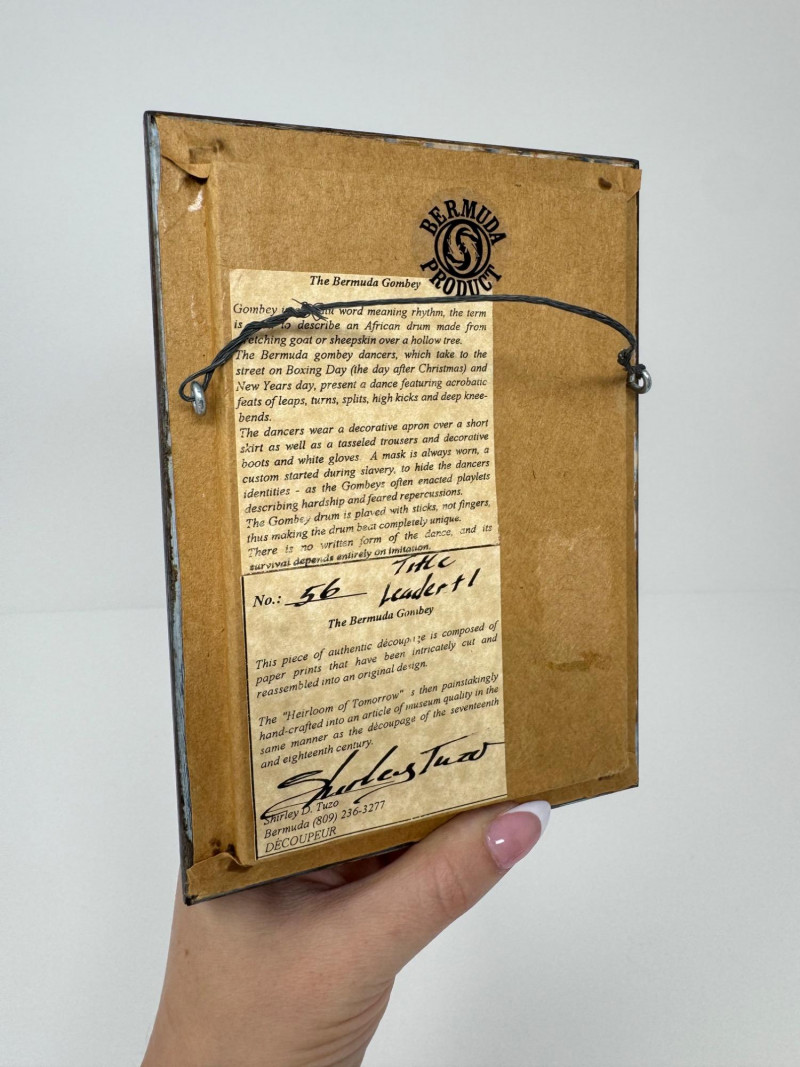 BERMUDA
PRODUCT
The Bermuda Gombey
Gombey word meaning rhythm, the term
is to describe an African drum made from
goat or sheepskin over a hollow tree.
The Bermuda gombey dancers, which take to the
street on Boxing Day (the day after Christmas) and
New Years day, present a dance featuring acrobatic
feats of leaps, turns, splits, high kicks and deep knee-
bends.
The dancers wear a decorative apron over a short
skirt as well as a tasseled trousers and decorative
boots and white gloves. A mask is always worn, a
custom started during slavery, to hide the dancers
identities - as the Gombeys often enacted playlets
describing hardship and feared repercussions.
The Gombey drum is played with sticks, not fingers,
thus making the drum beat completely unique.
There is no written form of the dance, and its
survival depends entirely on imitation.
Title
No.: 56 Leader #1
The Bermuda Gombey
This piece of authentic découpage is composed of
paper prints that have been intricately cut and
reassembled into an original design.
The "Heirloom of Tomorrow" is then painstakingly
hand-crafted into an article of museum quality in the
same manner as the découpage of the seventeenth
and eighteenth century.
Shirley Tuzo
Shirley D. Tuzo
Bermuda (809) 236-3277
DÉCOUPEUR